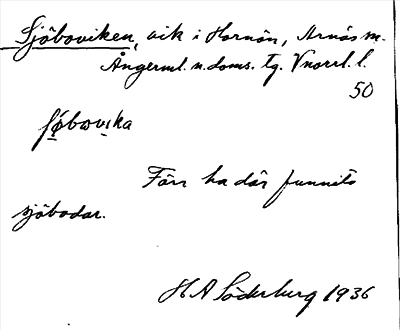 Sjöboviken, vik i Hornön, Arnäs m.
Ångerml. n. doms. tg. Vnorrl. l.
50
Förr ha där funnits
sjöbodar.
H A Söderberg 1936